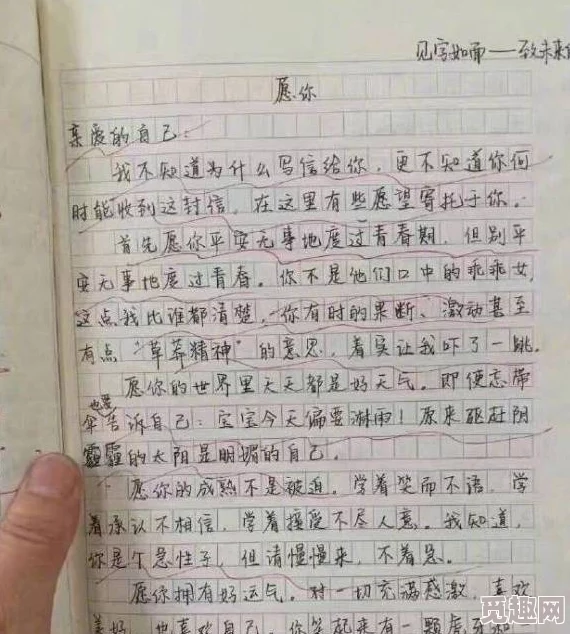 见字如面——致未来
愿你
亲爱的自己：
我不知道为什么写信给你，更不知道你何
时能收到这封信，在这里有些愿望寄托于你。
首先愿你平安无事地度过青春期，但别平
安无事地度过青春。你不是他们口中的乖乖女，
这点我比谁都清楚，你有时的果断、激动甚至
有点“草莽精神”的意思，着实让我吓了一跳。
愿你的世界里天天都是好天气。即便忘带
也要
伞告诉自己：宝宝今天偏要淋雨！原来驱赶阴
霾的太阳是明媚的自己。
愿你的成熟不是被迫，学着笑而不语，学
着承认不相信，学着接受不尽人意。我知道，
你是个急性子，但请慢慢来，不着急。
愿你拥有好运气。对一切充满感激，喜欢
美好，也喜欢自己，你笑起来有一颗虎牙和
觅趣网